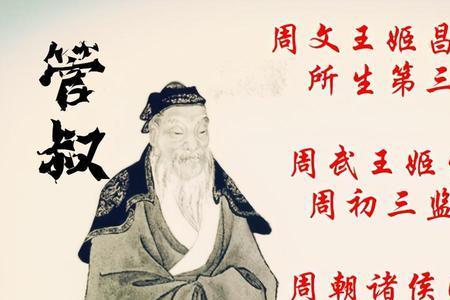 管叔
周文王姬昌
所生第三
周武王姬
周初三监
周朝诸侯